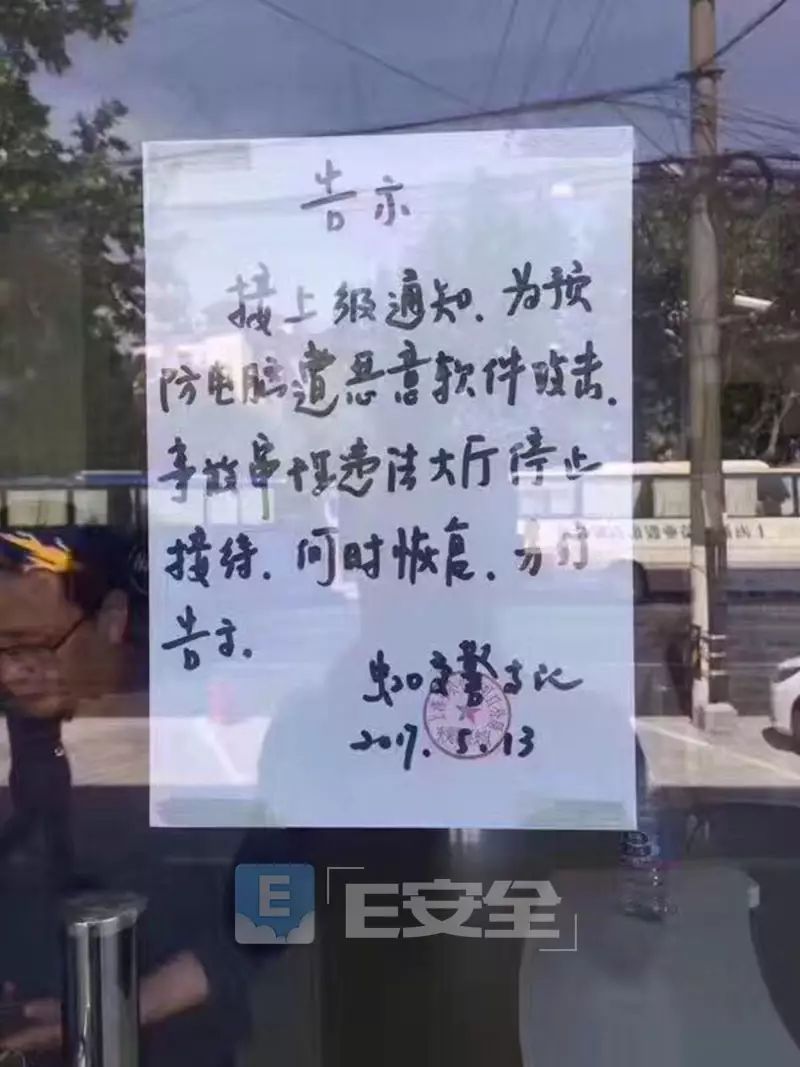 告示
接上级通知，为预
防电脑遭恶意软件攻击，
事故审理违法大厅停止
接待，何时恢复，另行
告示．
虹口交警支队
2017.5.13
E
E安全